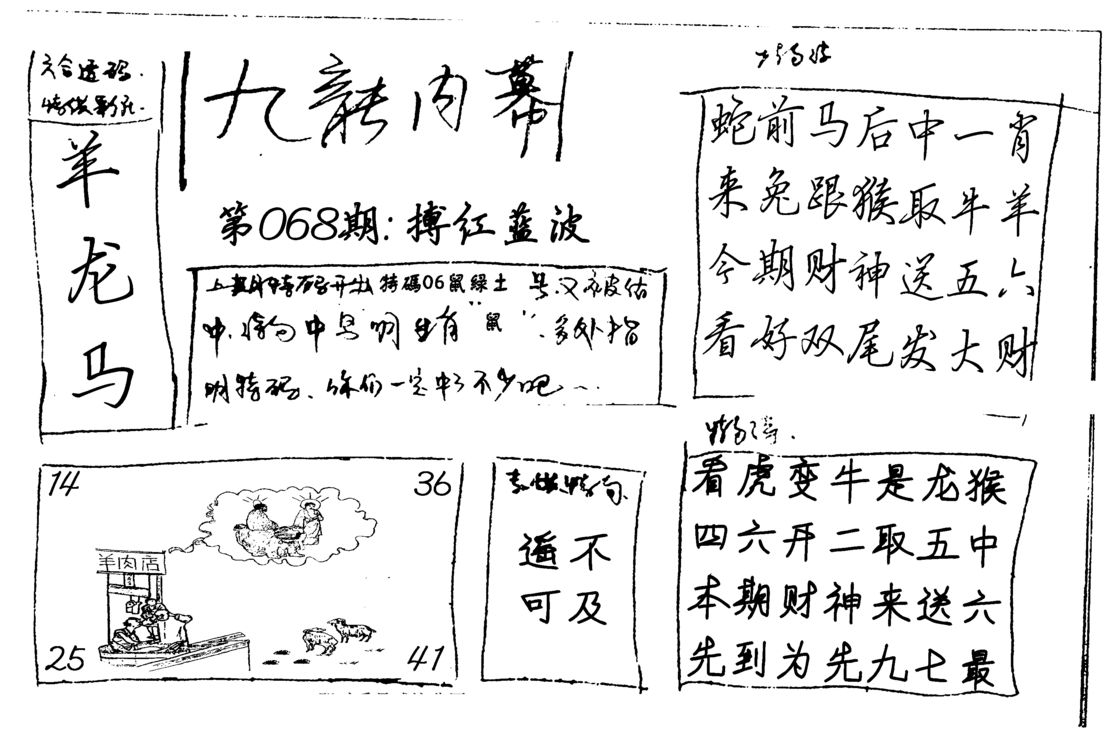 六合透码.
羊
龙
马
九龍内幕
第068期: 搏红蓝波
上期特码开出特碼06鼠緑土
中. 中 肖“鼠”. 多处指
明特码、你们一定中了不少吧
蛇前马后中一肖
来兔跟猴取牛羊
今期财神送五六
看好双尾发大财
14
36
羊肉店
25
41
遥不
可及
看虎变牛是龙猴
四六开二取五中
本期财神来送六
先到为先九七最